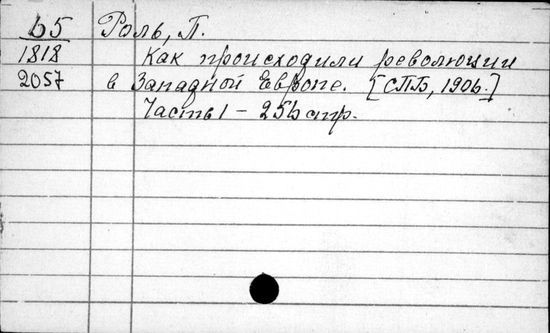 Ь5 Роль, П.
1818 Как происходили революции
2057 в Западной Европе. [СПБ, 1906.]
Часть I – 256 стр.